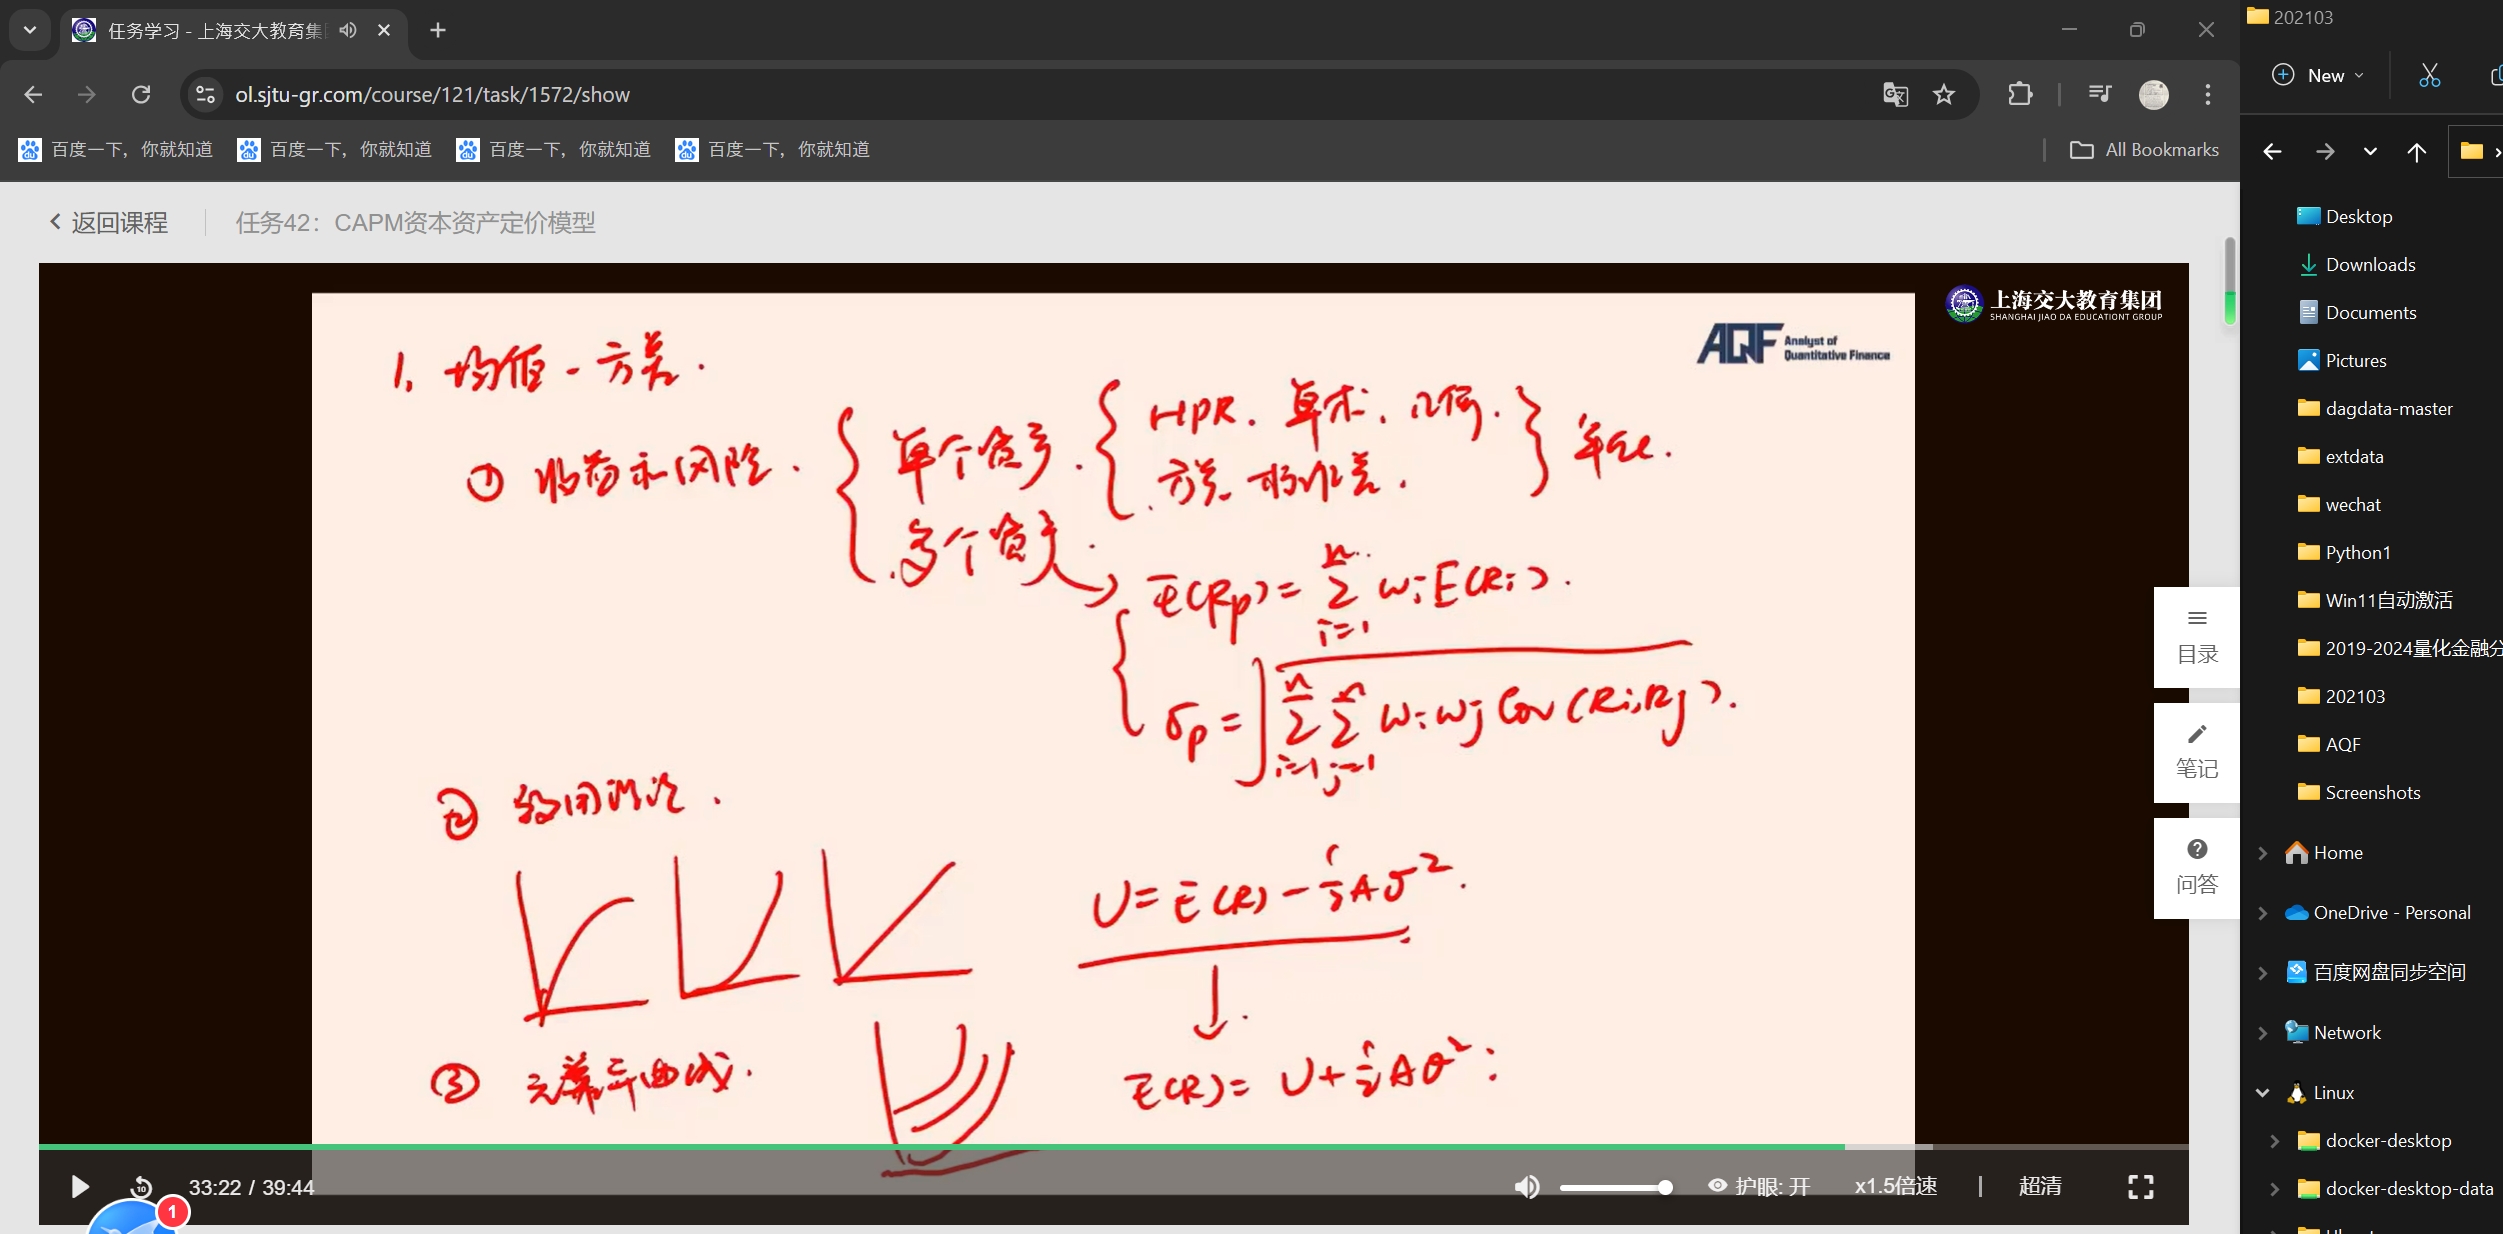 任务学习 - 上海交大教育集
202103
New
ol.sjtu-gr.com/course/121/task/1572/show
百度一下，你就知道
百度一下，你就知道
百度一下，你就知道
百度一下，你就知道
All Bookmarks
返回课程
任务42：CAPM资本资产定价模型
上海交大教育集团
SHANGHAI JIAO DA EDUCATIONT GROUP
AQF Analyst of
Quantitative Finance
1. 均值-方差.
① 收益和风险.
单个资产.
HPR. 算术. 几何.
方差. 标准差.
年化.
多个资产.
E(Rp)= n Σ i=1 wiE(Ri).
σp= √ n Σ i=1 n Σ j=1 wiwjCov(Ri,Rj).
② 效用理论.
U=E(R)-½Aσ².
③ 无差异曲线.
E(R)=U+½Aσ²:
目录
笔记
问答
10
33:22 / 39:44
护眼: 开
x1.5倍速
超清
1
Desktop
Downloads
Documents
Pictures
dagdata-master
extdata
wechat
Python1
Win11自动激活
2019-2024量化金融分
202103
AQF
Screenshots
Home
OneDrive - Personal
百度网盘同步空间
Network
Linux
docker-desktop
docker-desktop-data